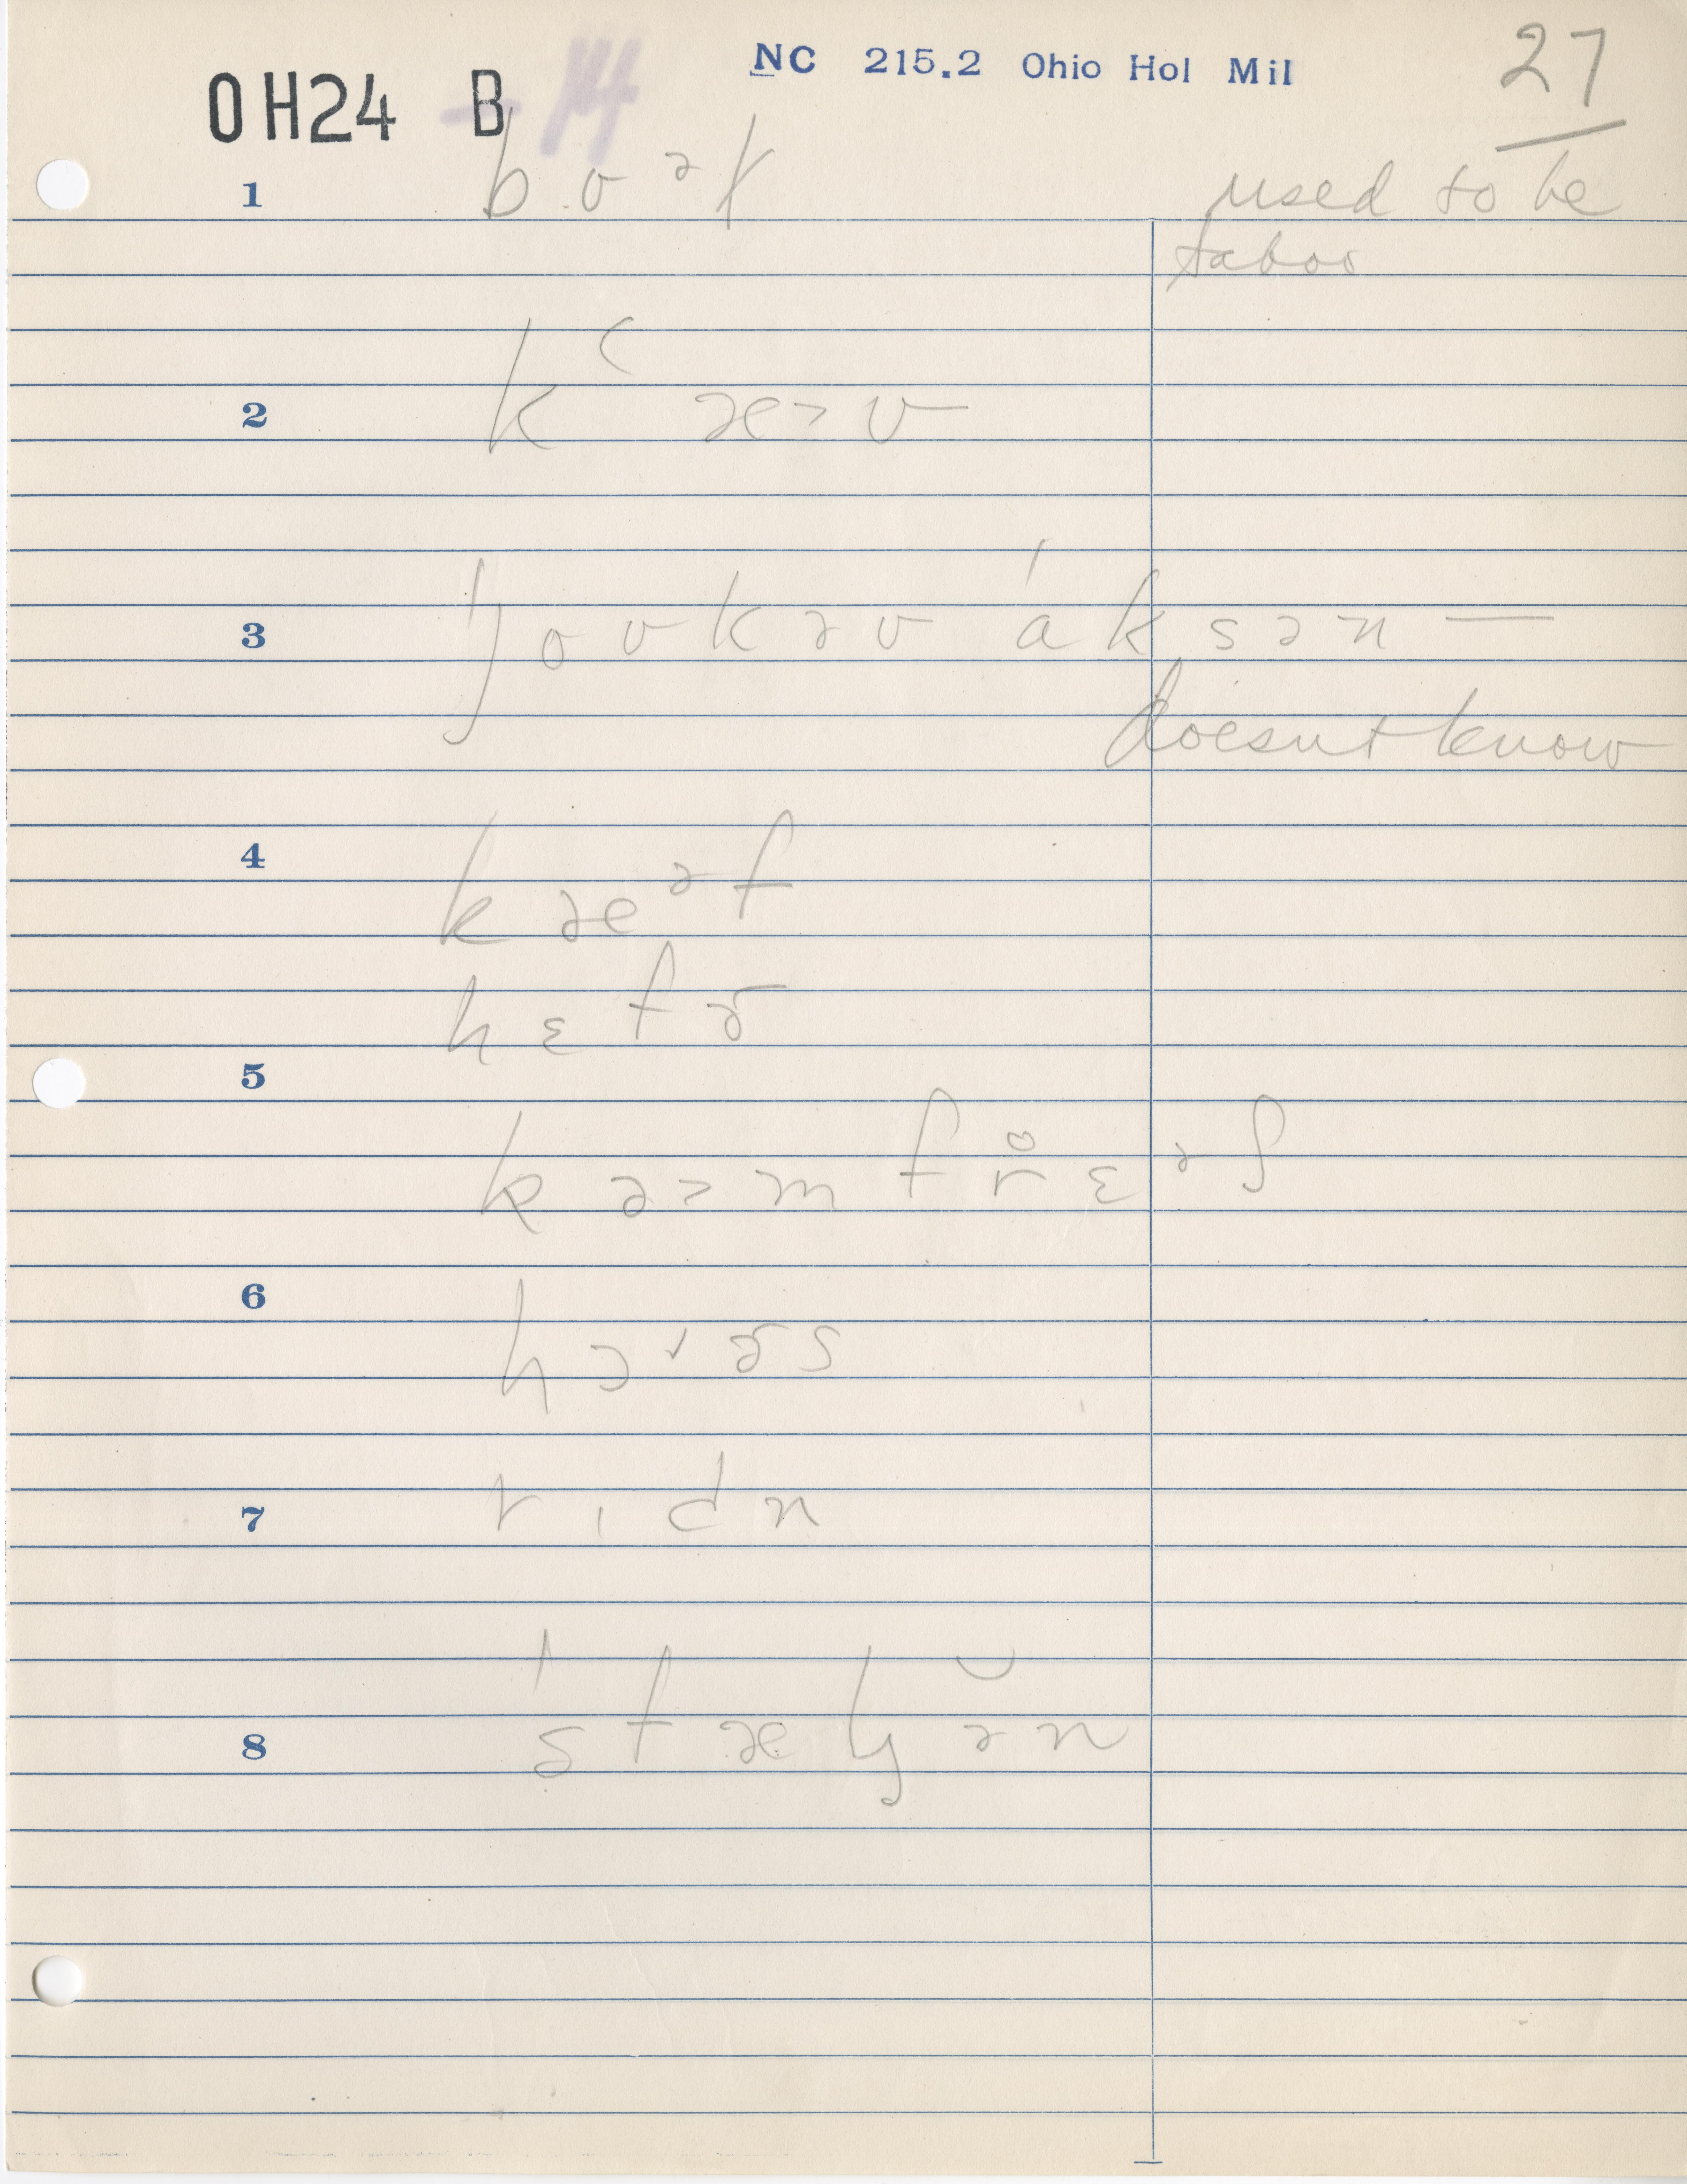 OH24 B NC 215.2 Ohio Hol Mil 27
1 bʊᵊk used to be
taboo
2 kʻ æ>ʊ
3 ˈjoʊkəʊ ˈáksən —
doesn't know
4 kæᵊf
hɛfɚ
5
kə>m fr̥ɛᵊʃ
6 hɔ˅ɚs
7 rɪdn
8 ˈstæljə̆n